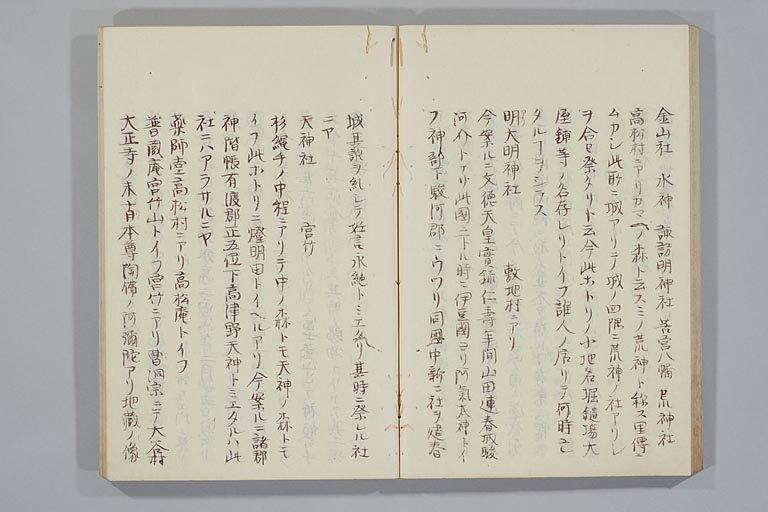 金山社 水神 諏訪明神社 若宮八幡 荒神社
高松村ニアリカマヘノ森ト云スミノ荒神ト稱ス里傳ニ
ムカシ此所ニ城アリテ城ノ四隅ニ荒神ノ社アリシ
ヲ合セ祭タリト云今此ホトリノ小地名堀鑓場大
屋鋪等ノ名存レリトイフ誰人ノ居リテ何時
タルコヲシラス
明大明神社 敷地村ニアリ
今案ルニ文徳天皇實錄仁壽年間山田連春城駿
河介トナリ此國ニトル時ニ伊豆國ヨリ阿氣大神トイ
フ神託下駿河郡ニウツリ同國中新ニ社ヲ建春
城其訴ヲ糺シテ妖言永絶トミエタリ其時ニ祭レル社
ニヤ
天神社 宮竹
杉縄手ノ中程ニアリテ中ノ森トモ天神ノ森トモ
イフ此ホトリニ燈明田トイヘルアリ今案ルニ諸郡
神階帳有渡郡正五位下高津野天神トミエタルハ此
社ニハアラサルニヤ
藥師堂高松村ニアリ高松庵トイフ
普藏庵宮竹山トイフ宮竹ニアリ曹洞宗ニテ大谷村
大正寺ノ末寺本尊陶佛ノ阿彌陀アリ地藏ノ像